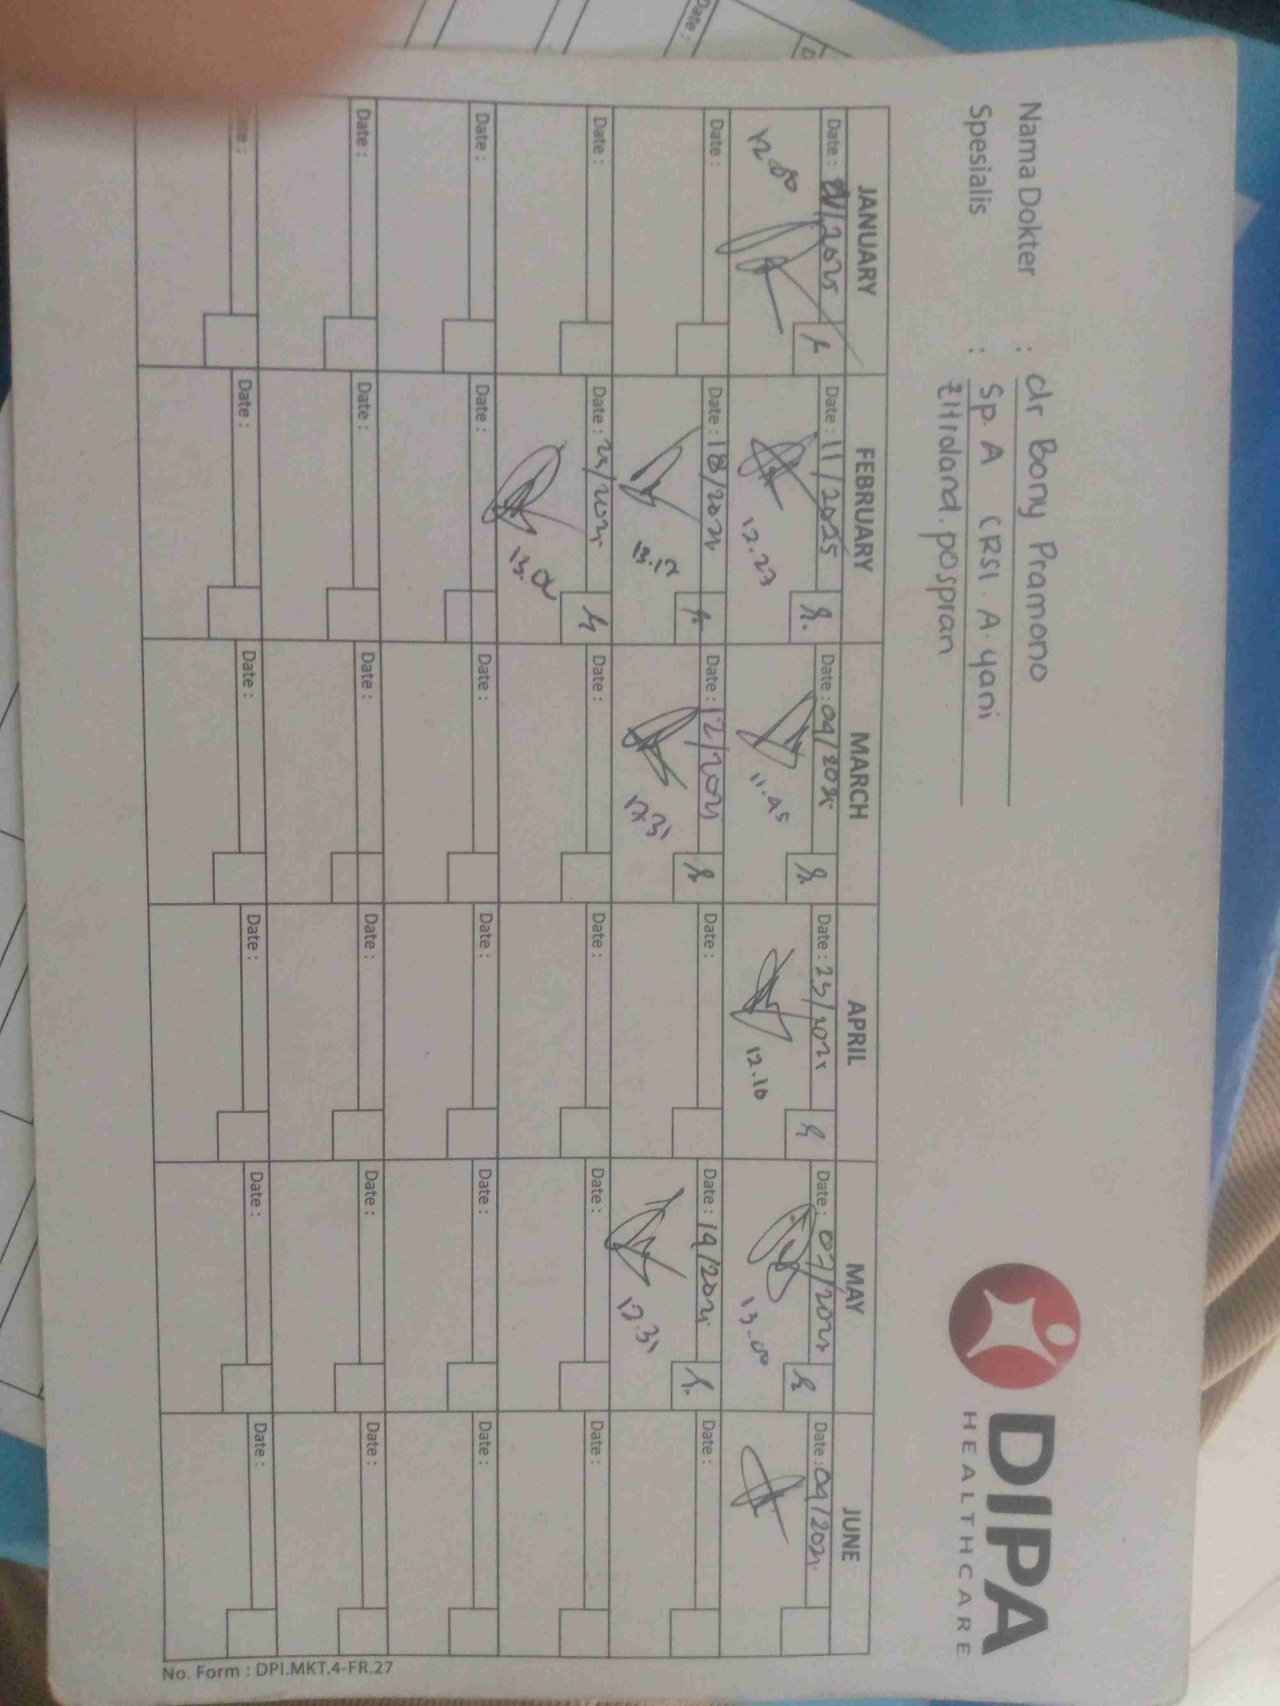 Nama Dokter : dr Bony Pramono
Spesialis : Sp. A (RSI. A. yani
pospran
DIPA
HEALTHCARE
JANUARY FEBRUARY MARCH APRIL MAY JUNE
Date : Date : 11/2025 Date : 04/2025 Date : 23/2025 Date : 07/2025 Date : 04/2025
12.00 12.23 11.45 12.10 13.00
Date : Date : 18/2025 Date : 12/2025 Date : Date : 14/2025 Date :
13.17 12.31 12.31
Date : Date : Date : Date : Date : Date :
Date : Date : Date : Date : Date : Date :
Date : Date : Date : Date : Date : Date :
Date : Date : Date : Date : Date :
No. Form : DPI.MKT.4-FR.27